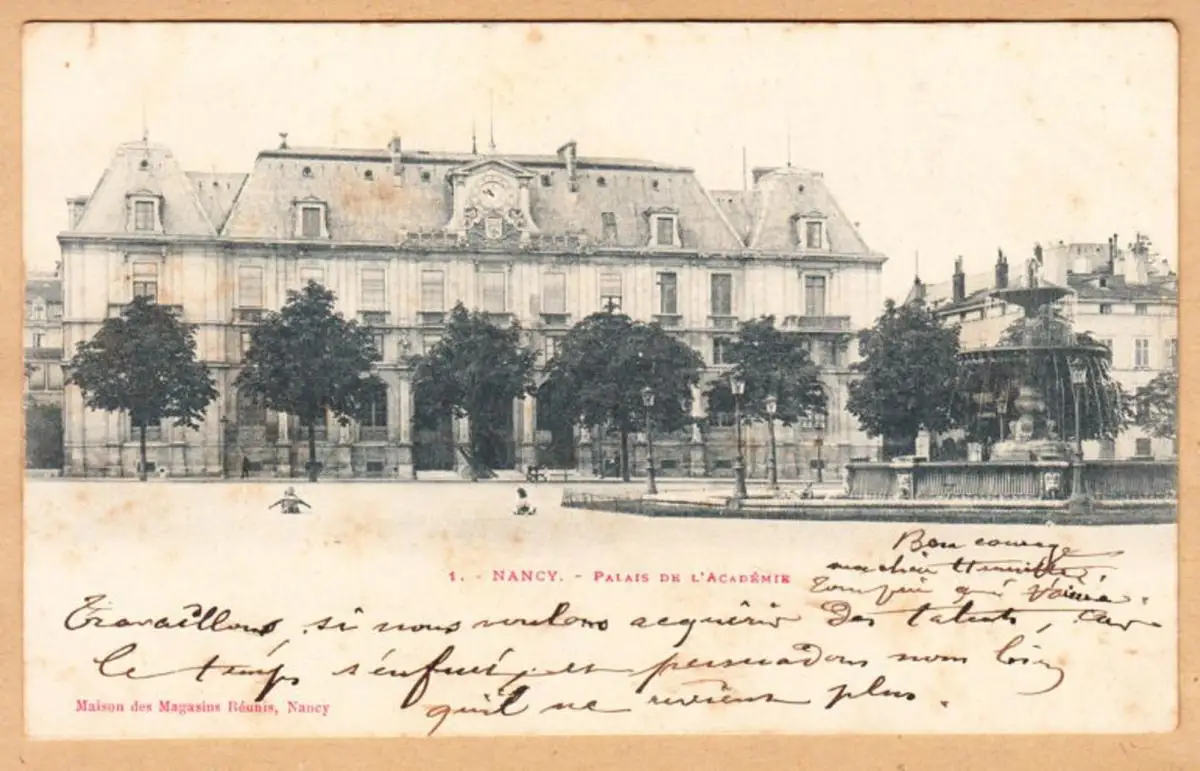 Bon courage
ma chère
qui t'aime.
1. - NANCY. - PALAIS DE L'ACADÉMIE
Travaillons, si nous voulons acquérir des talents, car
le temps s'enfuit, et persuadons nous bien
Maison des Magasins Réunis, Nancy
qu'il ne revient plus.